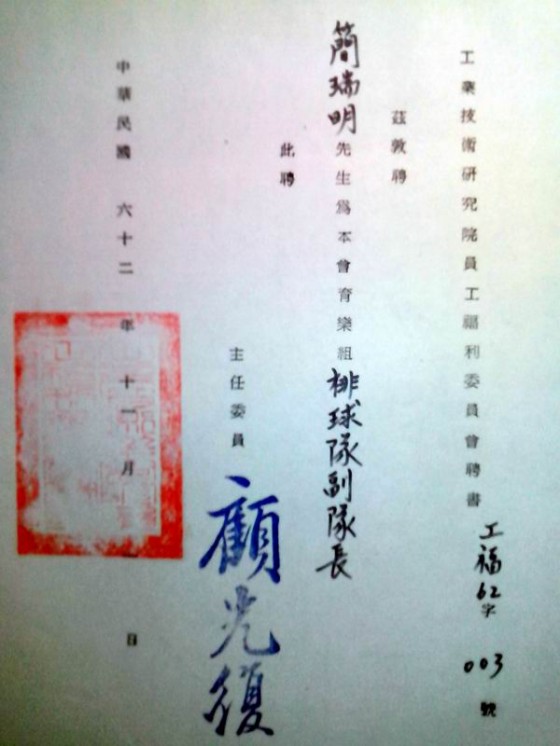 工業技術研究院員工福利委員會聘書 工福62字 003 號
茲敦聘
簡瑞明先生為本會育樂組排球隊副隊長
此聘
主任委員 顧光復
中華民國 六十二 年 十一 月 日